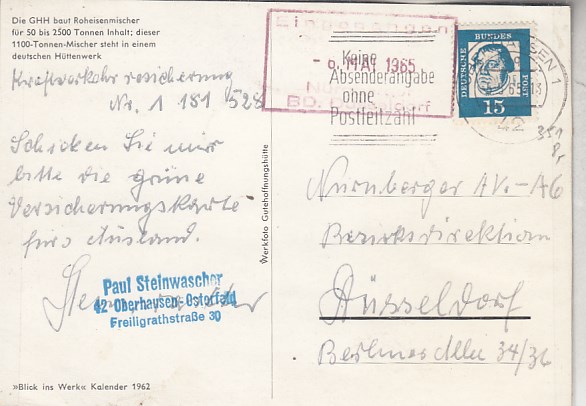 Die GHH baut Roheisenmischer
für 50 bis 2500 Tonnen Inhalt; dieser
1100-Tonnen-Mischer steht in einem
deutschen Hüttenwerk
Kraftverkehrsversicherung
Nr. 1 181 528
Schicken Sie mir
bitte die grüne
Versicherungskarte
fürs Ausland.
Paul Steinwascher
42 Oberhausen-Osterfeld
Freiligrathstraße 30
»Blick ins Werk« Kalender 1962
Werkfoto Gutehoffnungshütte
Eingegangen
- 6. MAI 1965
BD. Düsseldorf
Keine
Absenderangabe
ohne
Postleitzahl
DEUTSCHE BUNDES POST
15
42
351
Nürnberger AV.-AG
Bezirksdirektion
Düsseldorf
Berliner Allee 34/36